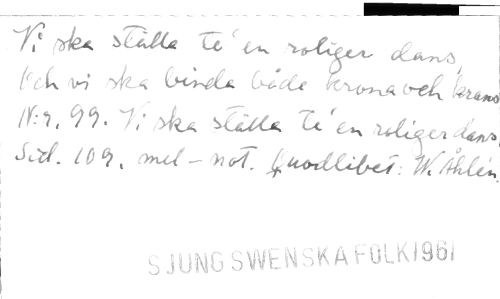 Vi ska ställa te' en roliger dans,
Och vi ska binda både krona och krans
N:r. 99. Vi ska ställa te' en roliger dans.
Sid. 109. mel-not. Quodlibet: W. Åhlén.
SJUNG SWENSKA FOLK 1961